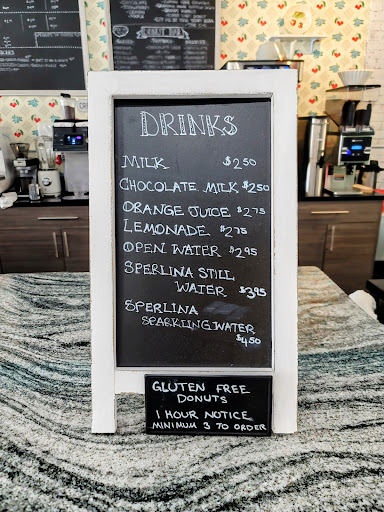 DRINKS
MILK $2.50
CHOCOLATE MILK $2.50
ORANGE JUICE $2.75
LEMONADE $2.75
OPEN WATER $2.95
SPERLINA STILL
WATER $3.95
SPERLINA
SPARKLING WATER
$4.50
GLUTEN FREE
DONUTS
1 HOUR NOTICE
MINIMUM 3 TO ORDER